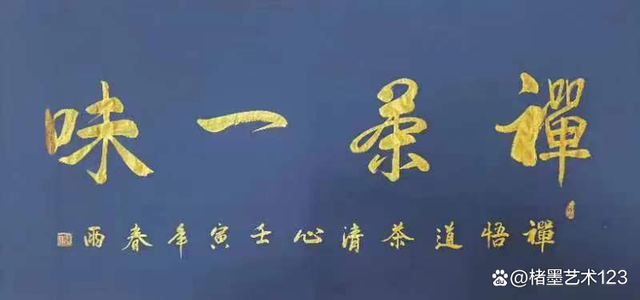 禪茶一味
禪悟道茶清心壬寅年春雨
楮墨艺术123